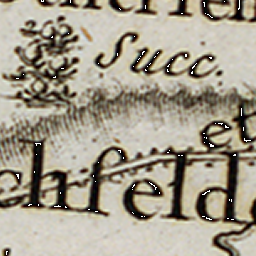 Succ.
et
chfeld